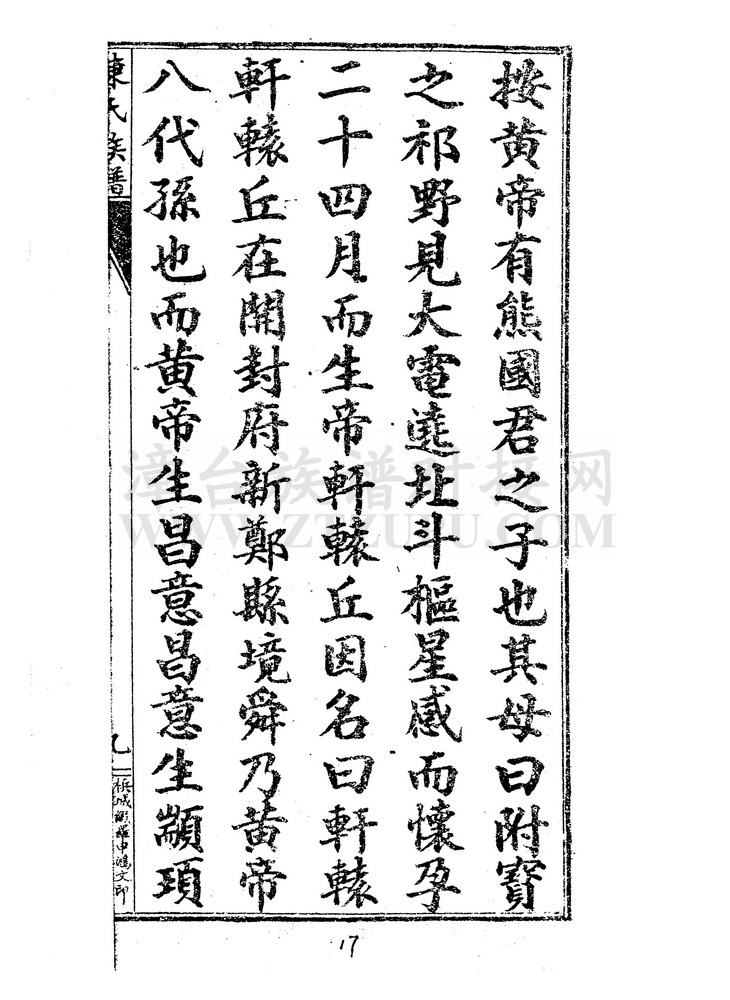 按黄帝有熊國君之子也其母曰附寳
之祁野見大電遶北斗樞星感而懷孕
二十四月而生帝軒轅丘因名曰軒轅
軒轅丘在開封府新鄭縣境舜乃黄帝
八代孫也而黄帝生昌意昌意生顓頊
陳氏族譜
漳台族谱对接网
WWW.ZTZUPU.COM
17